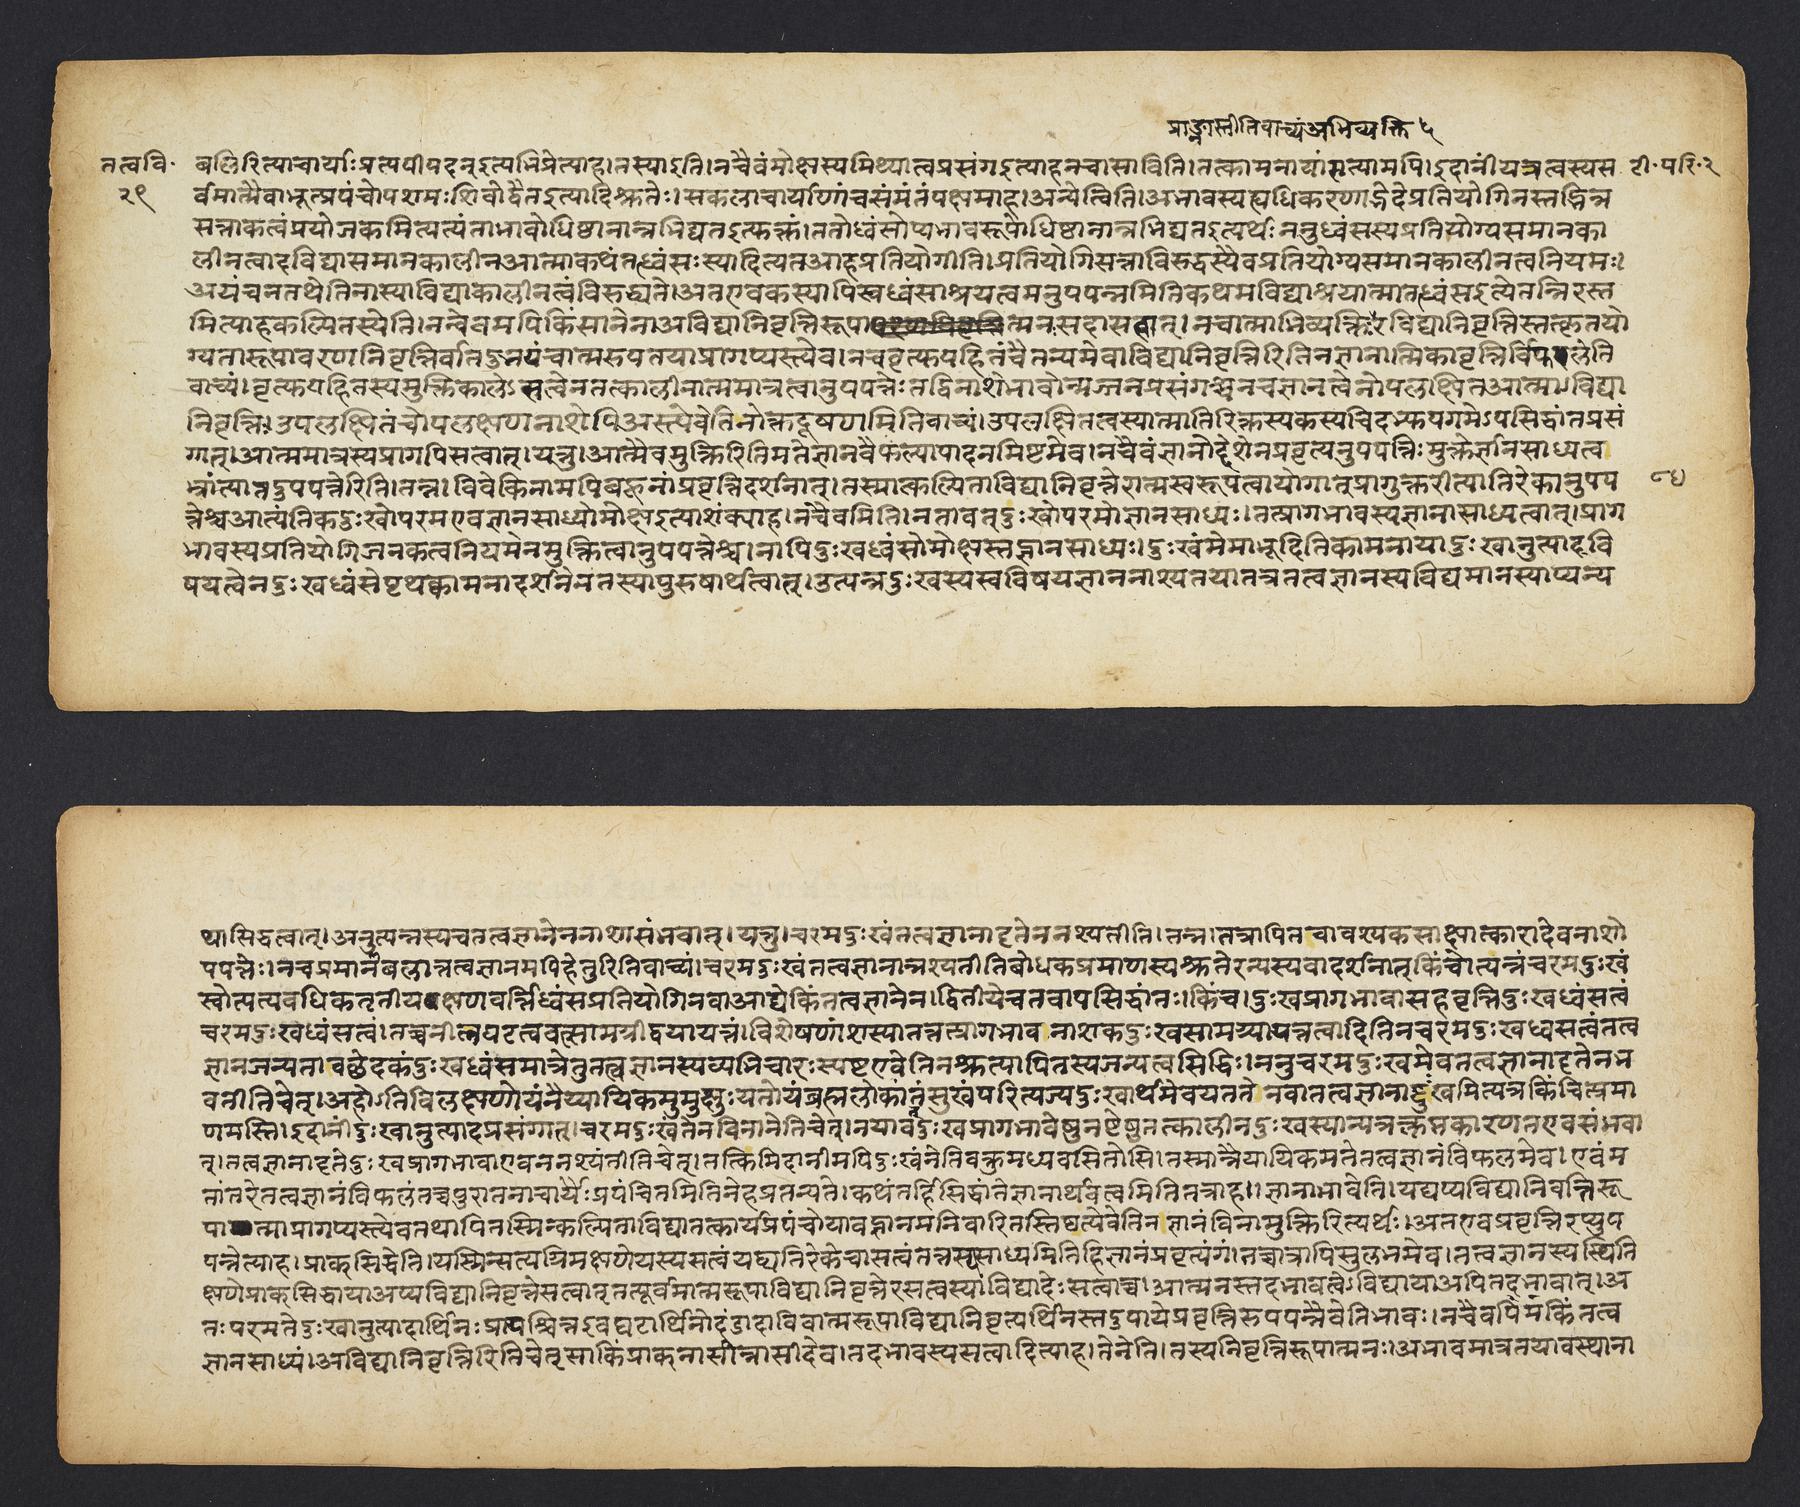 प्राङ्नास्तीतिवाच्यंअभिव्यक्ति ५
तत्ववि॰
२९
टी॰परि॰२
बलिरित्याचार्याःप्रत्यपीपदन्नइत्यभिप्रेत्याह।तस्याइति।नचैवंमोक्षस्यमिथ्यात्वप्रसंगइत्याहनचासाविति।तत्कामनायांसत्यामपि।इदानींयत्नत्वस्यस
र्वमात्मैवाभूत्प्रपंचोपशमःशिवोद्वैतइत्यादिश्रुतेः।सकलाचार्याणांचसंमंतंपक्षमाह।अन्येत्विति।अभावस्यह्यधिकरणाद्भेदेप्रतियोगिनस्तद्भिन्न
सत्ताकत्वंप्रयोजकमित्यत्यंताभावोधिष्ठानान्नभिद्यतइत्युक्तं।ततोध्वंसोप्यभावरूपोधिष्ठानान्नभिद्यतइत्यर्थः ननुध्वंसस्यप्रतियोग्यसमानका
लीनत्वादविद्यासमानकालीनआत्माकथंतध्वंसःस्यादित्यतआहप्रतियोगीति।प्रतियोगिसत्ताविरुद्धस्यैवप्रतियोग्यसमानकालीनत्वनियमः।
अयंचनतथेतिनास्याविद्याकालीनत्वंविरुद्ध्यते।अतएवकस्यापिस्वध्वंसाश्रयत्वमनुपपन्नमितिकथमविद्याश्रयात्मातध्वंसइत्येतन्निरस्त
मित्याहकल्पितस्येति।नन्वेवमपिकिंसानेन।अविद्यानिवृत्तिरूपात्मनःसदासत्वात्।नचात्माभिव्यक्तिरविद्यानिवृत्तिस्तत्कृतयो
ग्यतारूपावरणनिवृत्तिर्वातिऽनयंचात्मरुपतयाप्रागप्यस्त्येव।नचवृत्युपहितंचैतन्यमेवाविद्यानिवृत्तिरितिनज्ञानात्मिकावृत्तिर्विफलेति
वाच्यं।वृत्युपहितस्यमुक्तिकालेऽसत्वेनतत्कालीनात्ममात्रत्वानुपपत्तेःतद्विनाशेभावोन्मज्जनप्रसंगश्चनचज्ञानत्वेनोपलक्षितआत्माऽविद्या
निवृत्तिः।उपलक्षितंचोपलक्षणनाशेपिअस्त्येवेतिनोक्तदूषणमितिवाच्यं।उपलक्षितत्वस्यात्मातिरिक्तस्यकस्यचिदभ्युपगमेऽपसिद्धांतप्रसं
गात्।आत्ममात्रस्यप्रागपिसत्वात्।यत्तु।आत्मैवमुक्तिरितिमतेज्ञानवैफल्यापादनमिष्टमेव।नचैवंज्ञानोद्देशेनप्रवृत्यनुपपत्तिःमुक्तेर्ज्ञानसाध्यत्व
भ्रांत्यातदुपपत्तेरिति।तन्न।विवेकिनामपिबहूनांप्रवृत्तिदर्शनात्।तस्मात्कल्पिताविद्यानिवृत्तेरात्मस्वरूपत्वायोगात्प्रागुक्तरीत्यातिरेकानुपप
त्तेश्चआत्यंतिकदुःखोपरमएवज्ञानसाध्योमोक्षइत्याशंक्याह।नचैवमिति।नतावत्दुःखोपरमोज्ञानसाध्यः।तत्प्रागभावस्यज्ञानासाध्यत्वात्।प्राग
भावस्यप्रतियोगिजनकत्वनियमेनमुक्तित्वानुपपत्तेश्च।नापिदुःखध्वंसोमोक्षस्तज्ञानसाध्यः।दुःखंमेमाभूदितिकामनायादुःखानुत्पादवि
षयत्वेनदुःखध्वंसेपृथक्कामनादर्शनेनतस्यापुरुषार्थत्वात्।उत्पन्नदुःखस्यस्वविषयज्ञाननाश्यतयातत्रतत्वज्ञानस्यविद्यमानस्याप्यन्य
थासिद्धत्वात्।अनुत्पन्नस्यचतत्वज्ञानेननाशासंभवात्।यत्तु।चरमदुःखंतत्वज्ञानादृतेननश्यतीति।तन्न।तत्रापितवावश्यकसाक्षात्कारादेवनाशो
पपत्तेः।नचप्रमानंबलात्तत्वज्ञानमपिहेतुरितिवाच्यं।चरमदुःखंतत्वज्ञानान्नश्यतीतिबोधकप्रमाणस्यश्रुतेरन्यस्यवादर्शनात्किंचोत्पन्नंचरमदुःखं
स्वोत्पत्यवधिकतृतीयक्षणवर्त्तिध्वंसप्रतियोगिनवाआद्येकिंतत्वज्ञानेन।द्वितीयेचतवापसिद्धांतः।किंच।दुःखप्रागभावासहवृत्तिदुःखध्वंसत्वं
चरमदुःखध्वंसत्वं।तच्चनीलपटत्ववत्सामग्रीद्वयायत्तं।विशेषणांशस्यातत्तत्प्रागभाव नाशकदुःखसामग्र्यायत्तत्वादितिनचरमदुःखध्वसत्वंतत्व
ज्ञानजन्यतावछेदकंदुःखध्वंसमात्रेतुतत्वज्ञानस्यव्यभिचारःस्पष्टएवेतिनश्रुत्यापितस्यजन्यत्वसिद्धिः।ननुचरमदुःखमेवतत्वज्ञानादृतेनभ
वतीतिचेत्।अहोऽतिविलक्षणोयंनैय्यायिकमुमुक्षुःयतोयंब्रह्मलोकांतंसुखंपरित्यज्यदुःखार्थमेवयतते नवातत्वज्ञानाद्दुःखमित्यत्रकिंचित्प्रमा
णमस्ति।इदानींदुःखानुत्पादप्रसंगात्।चरमदुःखंतेनविनानेतिचेत्।नयावदुःखप्रागभावेषुनष्टेषुतत्कालीनदुःखस्यान्यत्रक्लृप्तकारणतएवसंभवा
त्।तत्वज्ञानादृतेदुःखप्रागभावाएवननश्यंतीतिचेत्।तत्किमिदानीमपिदुःखंनेतिवक्तुमध्यवसितोसि।तस्मान्नैयायिकमतेतत्वज्ञानंविफलमेव।एवंम
तांतरेतत्वज्ञानंविफलंतच्चपुरातनाचार्यैःप्रपंचितमितिनेहप्रतन्यते।कथंतर्हिसिद्धांतेज्ञानार्थवत्वमितितत्राह।।ज्ञानाभावेति।यद्यप्यविद्यानिवृत्तिरू
पात्माप्रागप्यस्त्येवतथापितस्मिन्कल्पिताविद्यातत्कार्यप्रपंचोयावज्ञानमनिवारितस्तिष्ठत्येवेतिनज्ञानंविनामुक्तिरित्यर्थः।अतएवप्रवृत्तिरप्युप
पन्नेत्याह।प्राक्सिद्धेति।यस्मिन्सत्यग्रिमक्षणेयस्यसत्वंयद्व्यतिरेकेचासत्वंतत्तत्साध्यमितिहिज्ञानंप्रवृत्यंगं।तच्चात्रापिसुलभमेव।तत्वज्ञानस्यस्थिति
क्षणेप्राक्सिद्धायाअप्यविद्यानिवृत्तेसत्वात्तत्पूर्वमात्मरूपाविद्यानिवृत्तेरसत्वस्याविद्यादेःसत्वाच्च।आत्मनस्तदभावत्वेऽविद्यायाअपितदभावात्।अ
तःपरमतेदुःखानुत्पादार्थिनःप्रायश्चित्तइवघटार्थिनोदंडादाविवात्मरूपाविद्यानिवृत्यर्थिनस्तदुपायेप्रवृत्तिरुपपन्नैवेतिभावः।नचैवमपिकिंतत्व
ज्ञानसाध्यं।अविद्यानिवृत्तिरितिचेत्साकिंप्राक्नासीन्नासीदेव।तदभावस्यसत्वादित्याह।तेनेति।तस्यनिवृत्तिरूपात्मनः।अभावमात्रतयावस्थाना